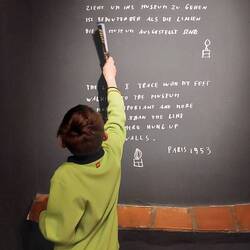 ZIEHT UM INS MUSEUM ZU GEHEN
IST BEDEUTENDER ALS DIE LINIEN
DIE MUSEUM AUSGESTELLT SIND
THE I TRACE WITH MY FEET
WALKING TO THE MUSEUM
IMPORTANT AND MORE
THAN THE LINES
HUNG UP
WALLS.
PARIS 1953